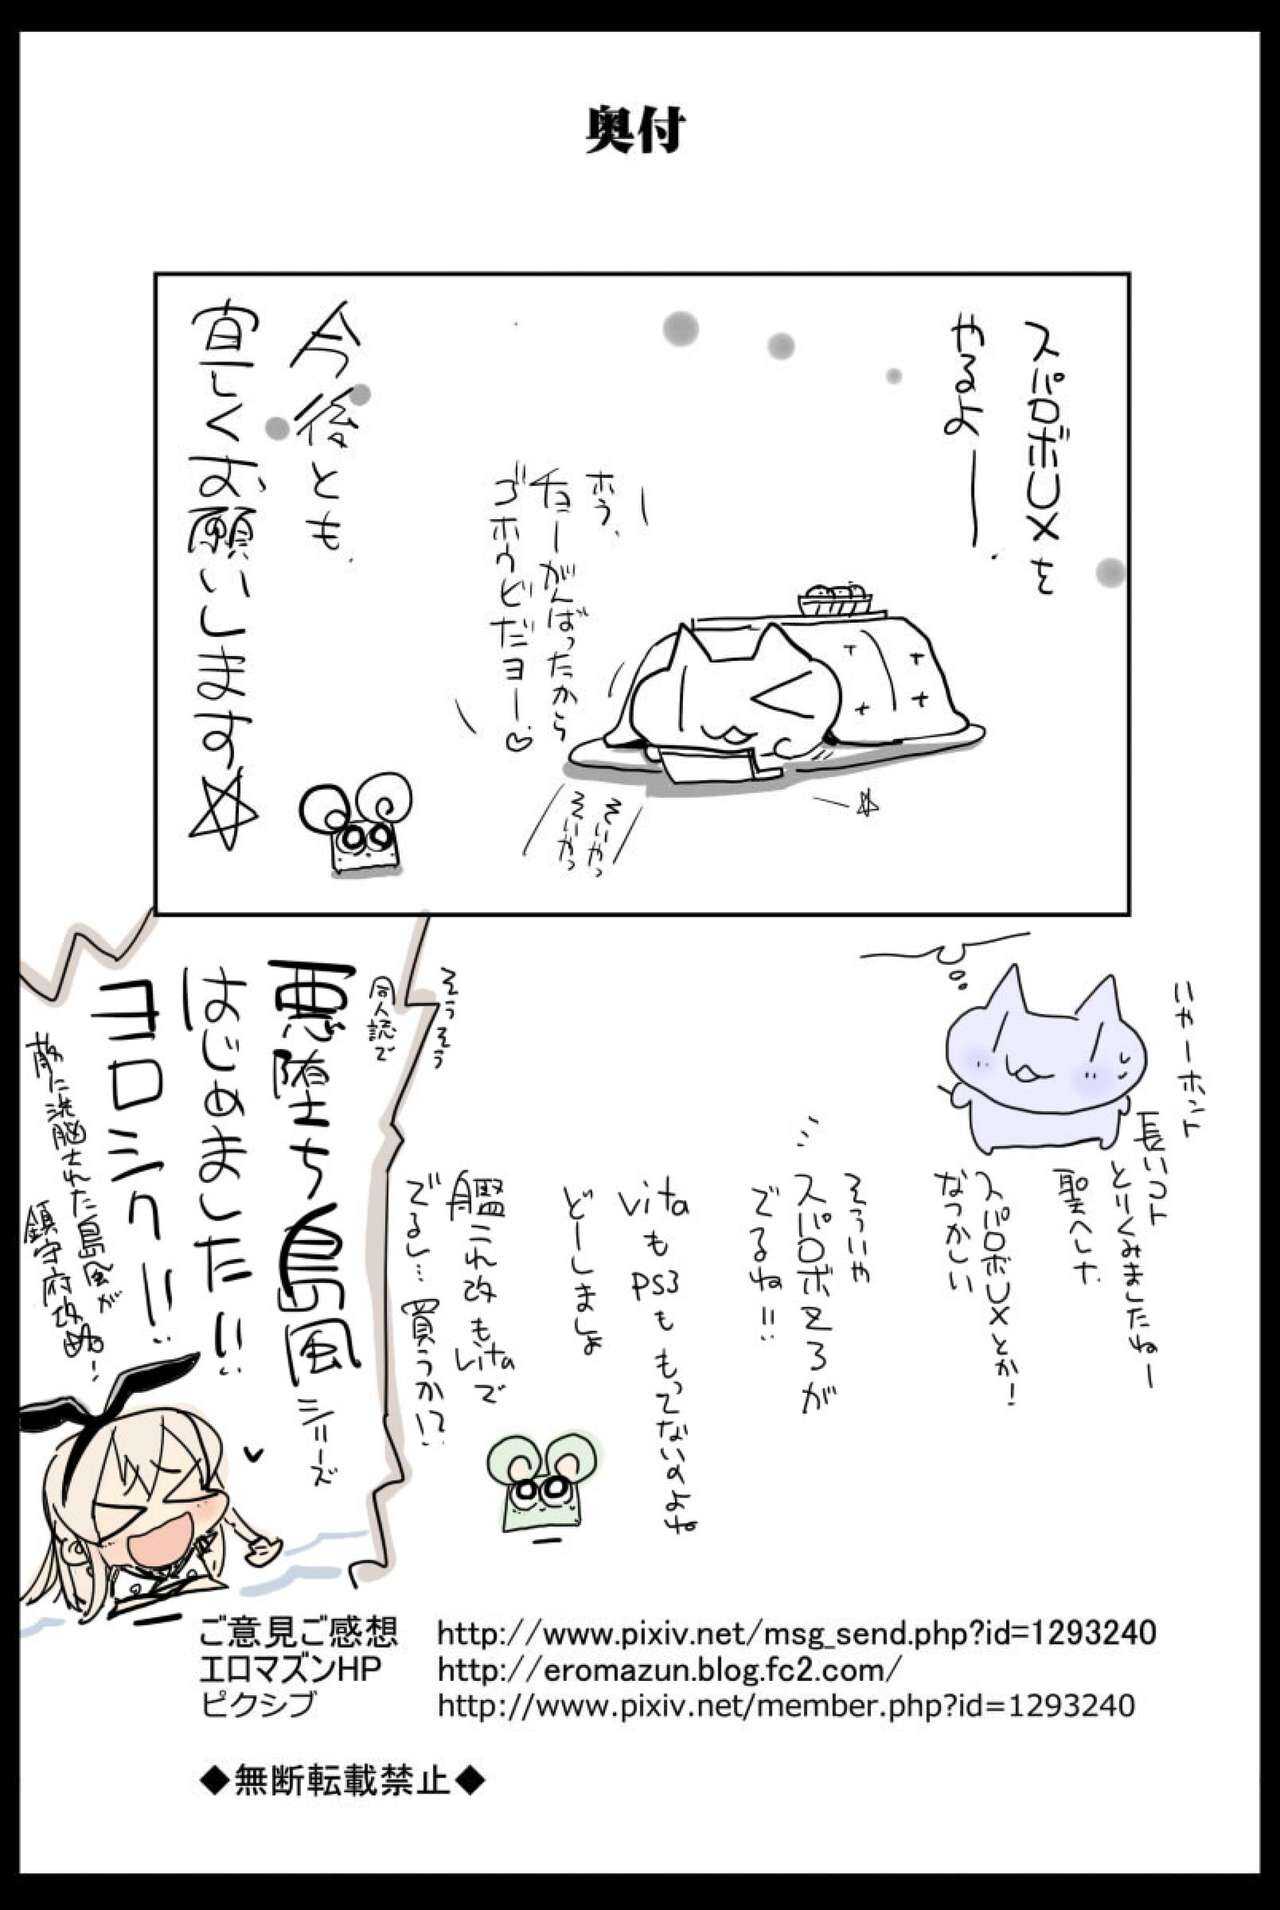 奥付
スパロボUXを
やるよー
ホラ、
チョーがんばったから
ゴホウビだヨー♡
今後とも
宜しくお願いします☆
そいやっ
そいやっ
いやーホント
長いコト
とりくみましたねー
スパロボUXとか!
なつかしい
そういや
スパロボZ3が
でるね!!
vitaも
PS3ももってないのよね
どーしましょ
艦これ改もvitaで
でるし…買うか!?
そうそう
同人誌で
悪堕ち島風シリーズ
はじめました!!
ヨロシク!!
に洗脳された島風が
鎮守府攻め!
ご意見ご感想 http://www.pixiv.net/msg_send.php?id=1293240
エロマズンHP http://eromazun.blog.fc2.com/
ピクシブ http://www.pixiv.net/member.php?id=1293240
◆無断転載禁止◆